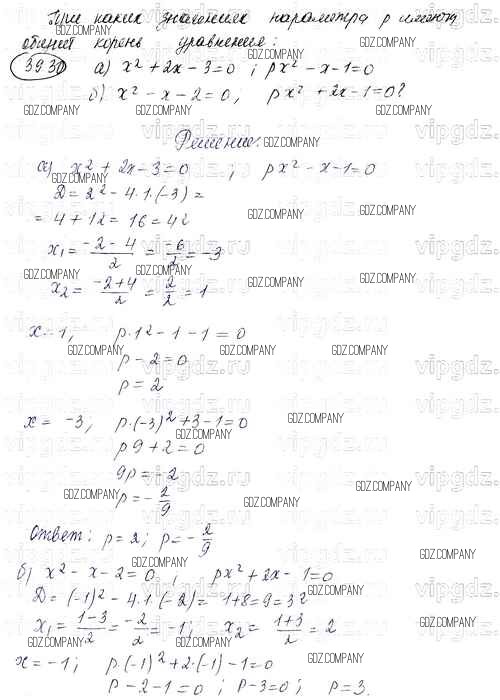 При каких значениях параметра р имеют
общий корень уравнения:
393 а) x² + 2x - 3 = 0 ; px² - x - 1 = 0
б) x² - x - 2 = 0, px² + 2x - 1 = 0?
Решение:
а) x² + 2x - 3 = 0 ; px² - x - 1 = 0
D = 2² - 4·1·(-3) =
= 4 + 12 = 16 = 4²
x₁ = (-2 - 4)/2 = -6/2 = -3
x₂ = (-2+4)/2 = 2/2 = 1
x = 1, p·1² - 1 - 1 = 0
p - 2 = 0
p = 2
x = -3; p·(-3)² + 3 - 1 = 0
p9 + 2 = 0
9p = -2
p = - 2/9
Ответ: p = 2; p = - 2/9
б) x² - x - 2 = 0 ; px² + 2x - 1 = 0
D = (-1)² - 4·1·(-2) = 1+8 = 9 = 3²
x₁ = (1-3)/2 = -2/2 = -1; x₂ = (1+3)/2 = 2
x = -1; p·(-1)² + 2·(-1) - 1 = 0
p - 2 - 1 = 0 ; p - 3 = 0; p = 3.
GDZ.COMPANY
vipgdz.ru